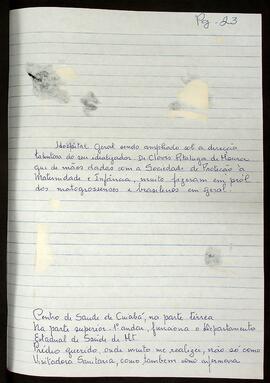 Pag. 23
Hospital Geral sendo ampliado sob a direção
talentosa do seu idealizador. Dr Clovis Pitaluga de Moura
que de mãos dadas com a Sociedade de Proteção à
Maternidade e Infância, muito fizeram em pról
dos matogrossenses e brasileiros em geral.
Centro de Saude de Cuiabá, na parte térrea
Na parte superior. 1º andar, funciona o Departamento
Estadual de Saude de Mt
Prédio querido, onde muito me realizei, não só como
Visitadora Sanitaria, como também como enfermeira